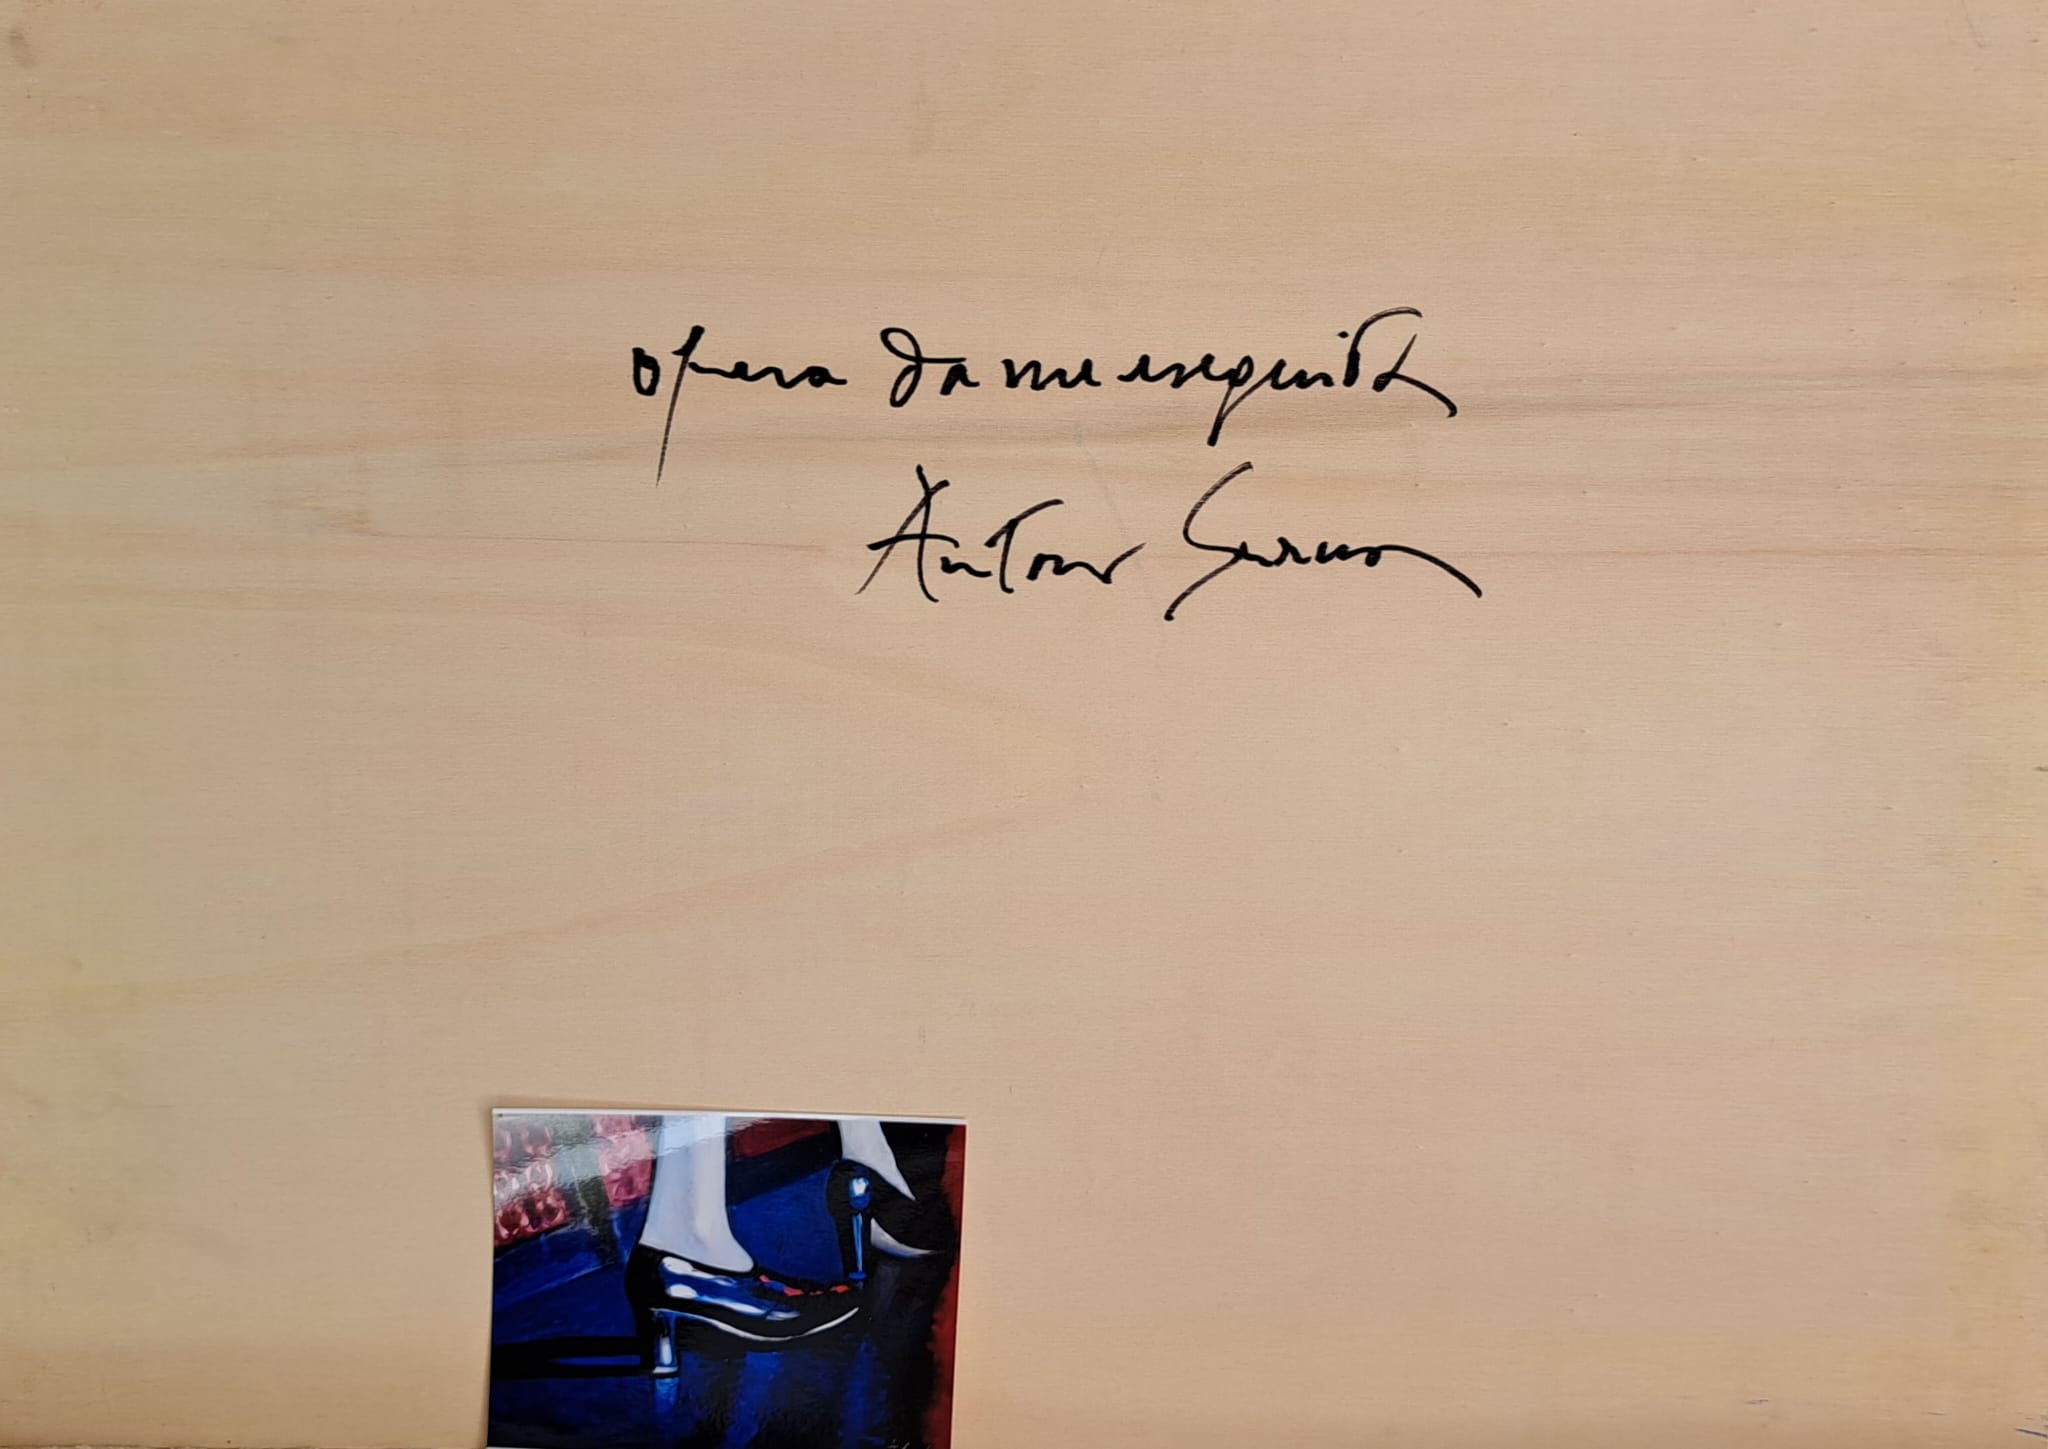 opera da me eseguita
Antonio